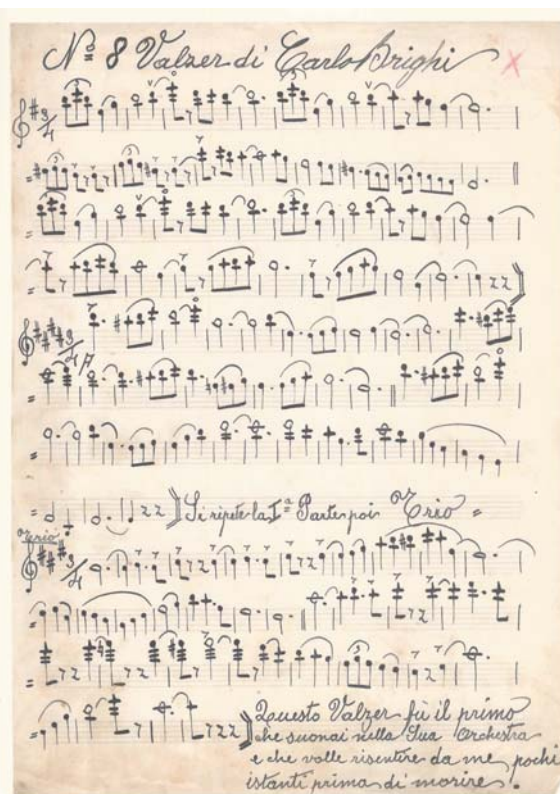 Nº 8 Valzer di Carlo Brighi
Si ripete la Iª Parte poi Trio =
Trio
Questo Valzer fù il primo
che suonai nella Sua Orchestra
e che volle risentire da me, pochi
istanti prima di morire.